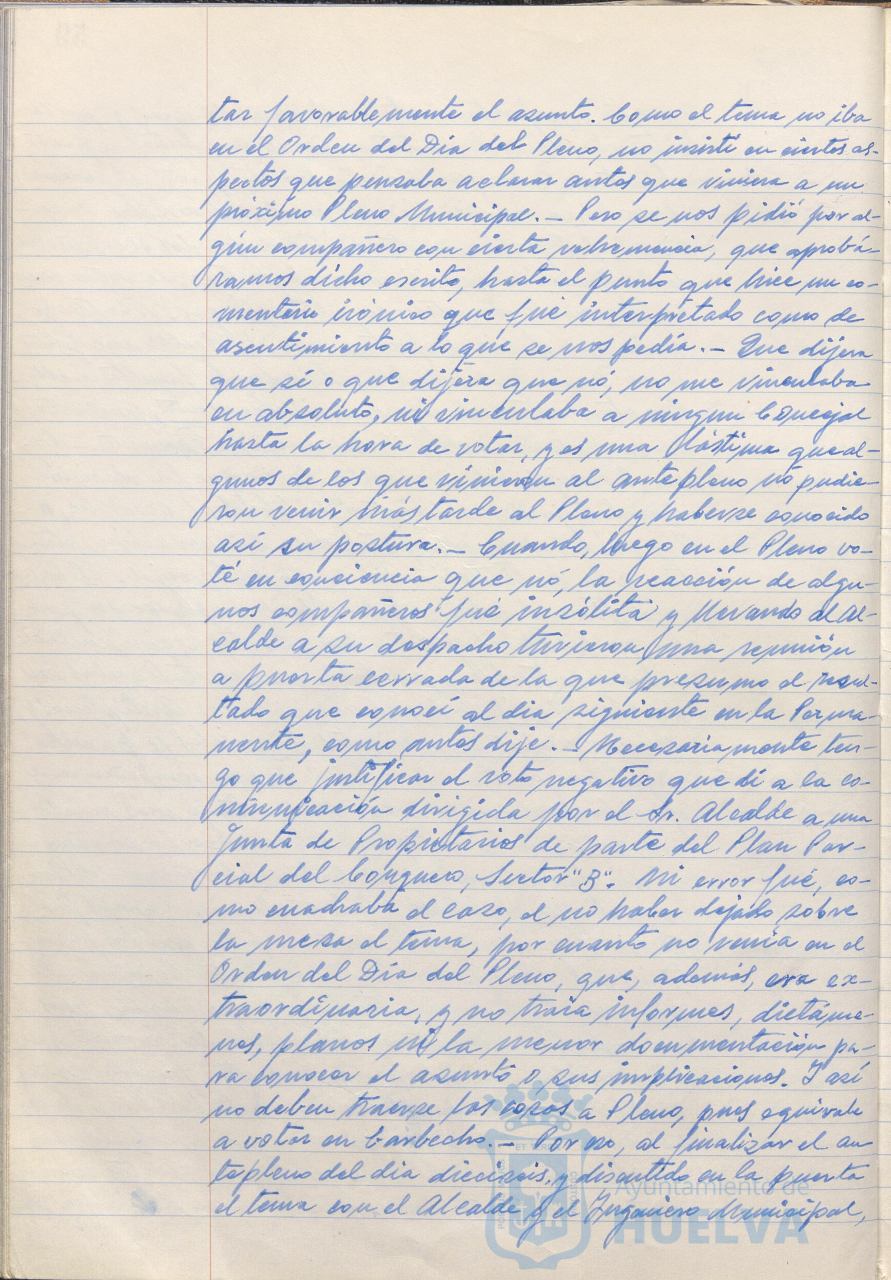 tar favorablemente el asunto. Como el tema no iba
en el Orden del Día del Pleno, no insistí en ciertos as-
pectos que pensaba aclarar antes que viniera a un
próximo Pleno Municipal.- Pero se nos pidió por al-
gún compañero con cierta vehemencia, que aprobá-
ramos dicho escrito, hasta el punto que hice un co-
mentario irónico que fué interpretado como de
asentimiento a lo que se nos pedía.- Que dijera
que sí o que dijera que nó, no me vinculaba
en absoluto, ni vinculaba a ningun Concejal
hasta la hora de votar, y es una lástima que al-
gunos de los que vinieron al antepleno no pudie-
ron venir más tarde al Pleno y haberse conocido
así su postura.- Cuando, luego en el Pleno vo-
té en conciencia que nó, la reacción de algu-
nos compañeros fué insólita y llevando al Al-
calde a su despacho tuvieron una reunión
a puerta cerrada de la que presumo el resul-
tado que conocí al dia siguiente en la Perma-
nente, como antes dije.- Necesariamente ten-
go que justificar el voto negativo que dí a la co-
municación dirigida por el Sr. Alcalde a una
Junta de Propietarios de parte del Plan Par-
cial del Conquero, Sector "B". Mi error fué, co-
mo cuadraba el caso, el no haber dejado sobre
la mesa el tema, por cuanto no venía en el
Orden del Día del Pleno, que, además, era ex-
traordinaria, y no traía informes, dictáme-
nes, planos ni la menor documentación pa-
ra conocer el asunto o sus implicaciones. Y así
no deben traerse las cosas a Pleno, pues equivale
a votar en barbecho.- Por eso, al finalizar el an-
tepleno del dia dieciseis, y discutido en la puerta
el tema con el Alcalde y el Ingeniero Municipal,
Ayuntamiento de
HUELVA